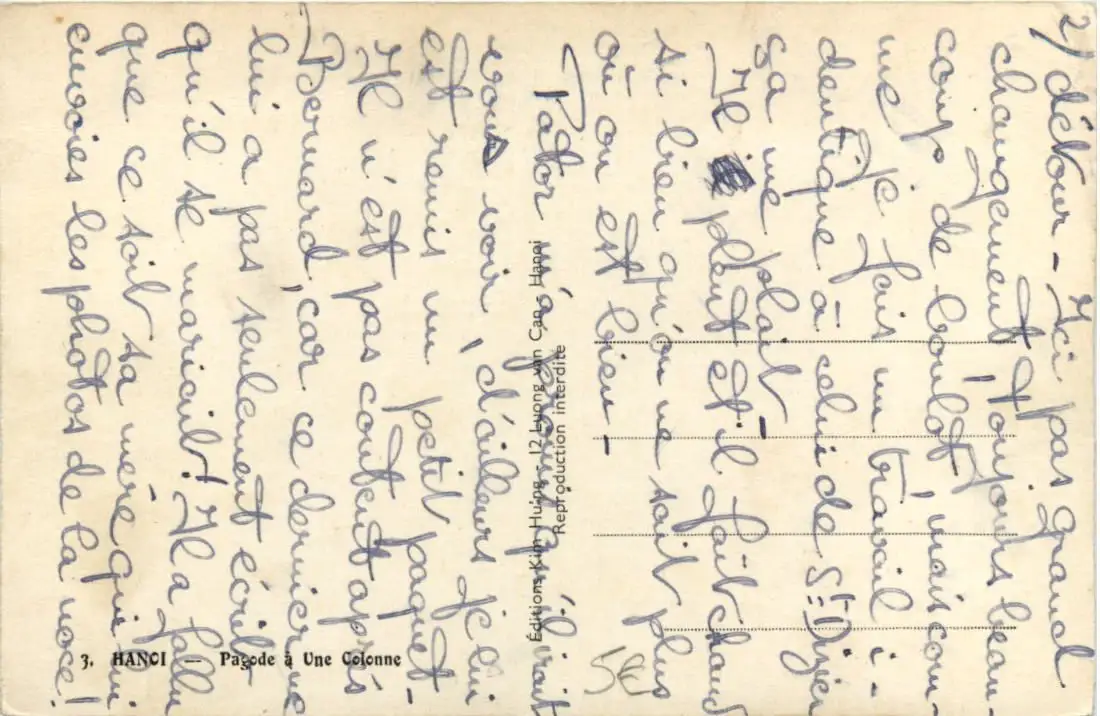 2) détour - Ici pas grand
changement. Toujours beau-
coup de boulot, mais com-
me je fais un travail i-
dentique à celui de St Dizier
ça me plait -
Il pleut et il fait chaud
si bien qu'on ne sait plus
où on est bien -
Pator m'a qu'il irait
vous voir, d'ailleurs je lui
est remis un petit paquet -
Il n'est pas content après
Bernard, car ce dernier ne
lui a pas seulement écrit
qu'il se mariait! Il a fallu
que ce soit sa mère qui lui
envoies les photos de la noce!
58
Éditions Kim Hung - 12 Luong van Can - Hanoi
Reproduction interdite
3. HANOI — Pagode à Une Colonne